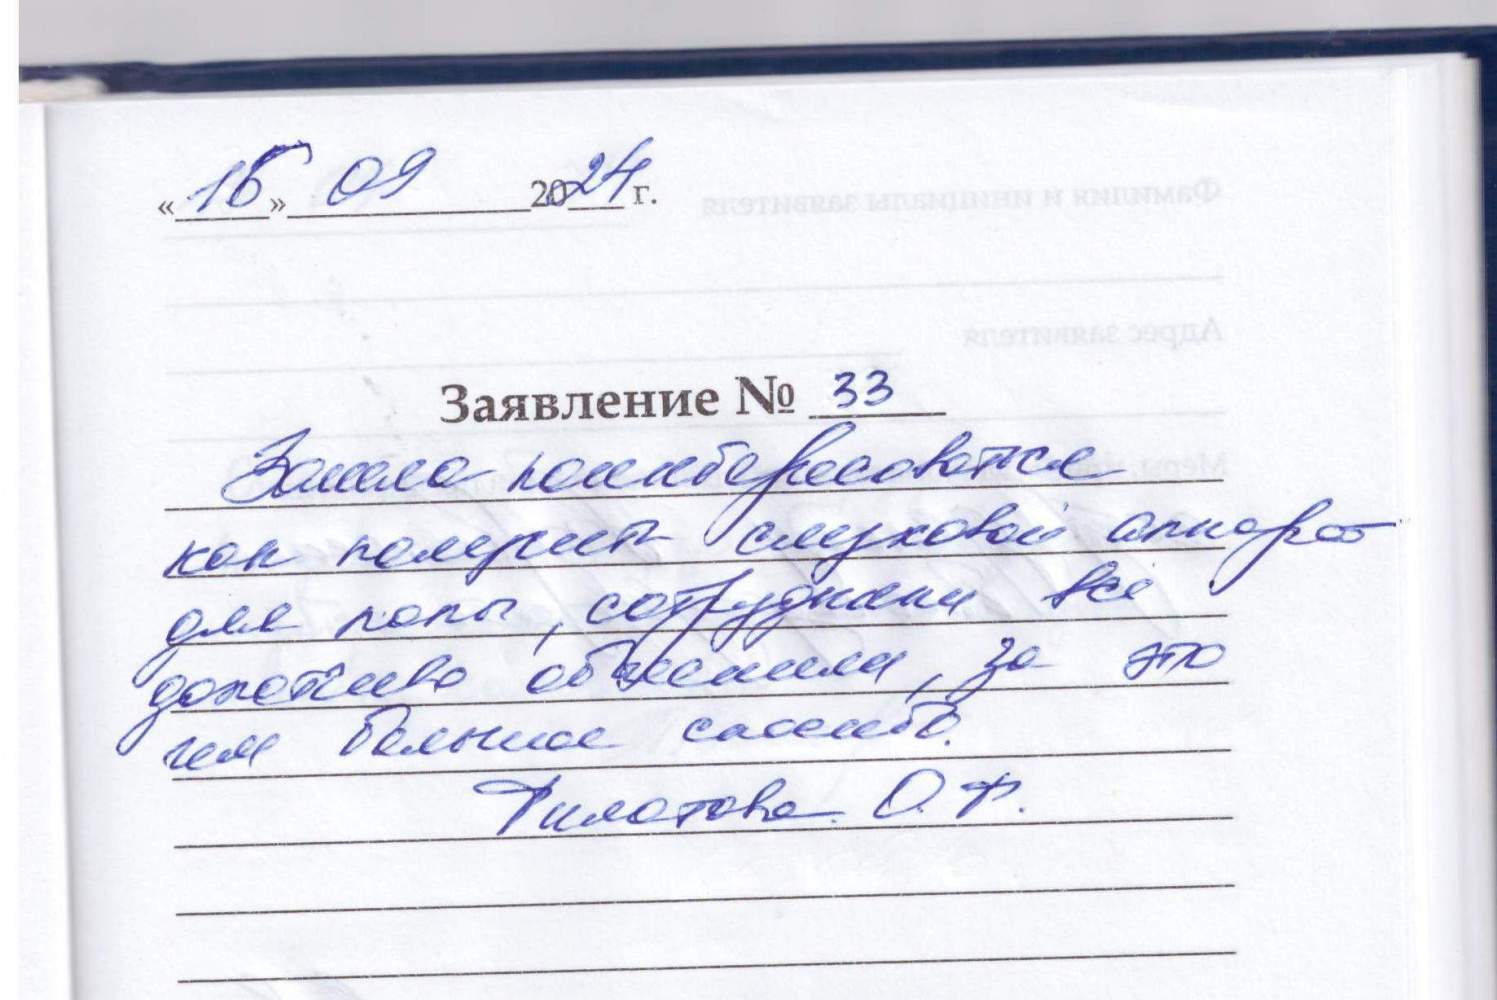 «16» 09 2024 г.
Заявление № 33
Зашла поинтересоваться
как получить слуховой аппарат
для папы, сотрудники все
доходчиво объяснили, за это
им большое спасибо.
Филатова О.Ф.